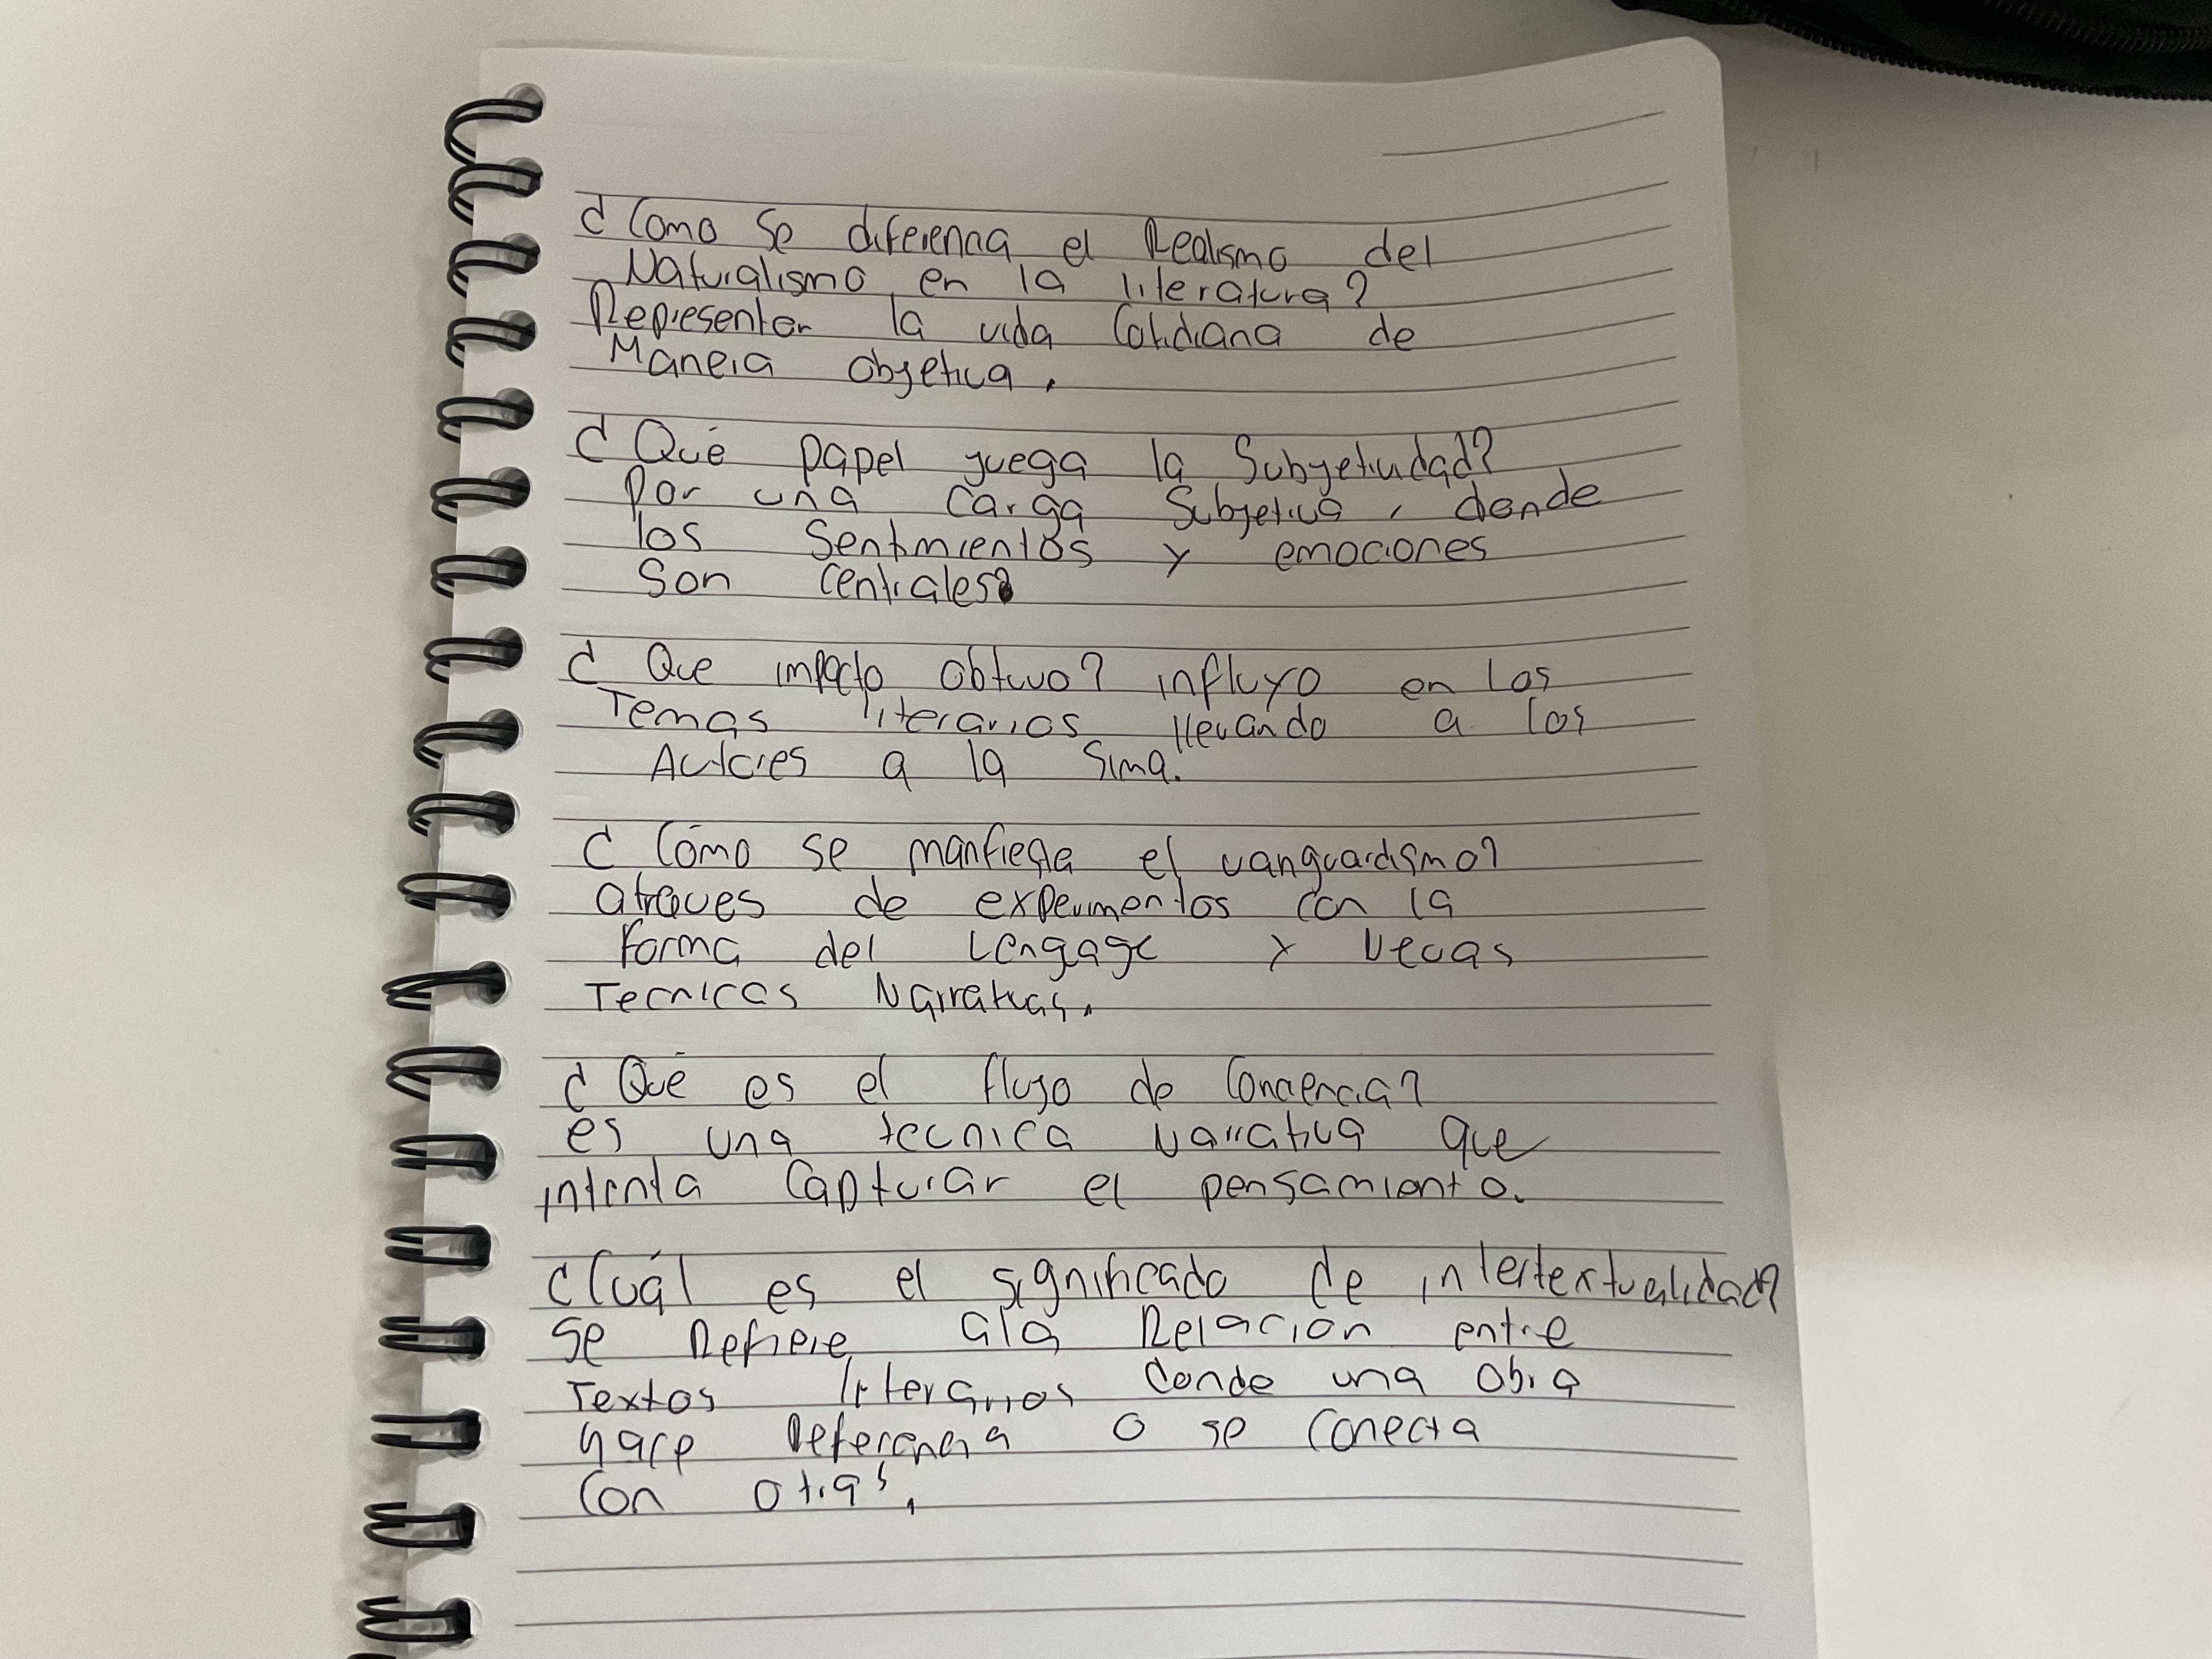 ¿Como se diferencia el Realismo del
Naturalismo en la literatura?
Representar la vida Cotidiana de
Manera objetiva.
¿Qué papel juega la Subjetividad?
Por una carga Subjetiva, donde
los Sentimientos y emociones
Son Centrales.
¿Que impacto obtuvo? influyo en los
Temas literarios llevando a los
Autores a la Sima.
¿Cómo se manfiesta el vanguardismo?
atraves de experimentos con la
Forma del Lengage y Nevas
Tecnicas Narrativas.
¿Qué es el flujo de Conciencia?
es una tecnica Narrativa que
intenta Capturar el pensamiento.
¿Cuál es el significado de intertextualidad?
se Refiere ala Relacion entre
Textos literarios donde una obra
hace Referencia o se Conecta
Con otras.